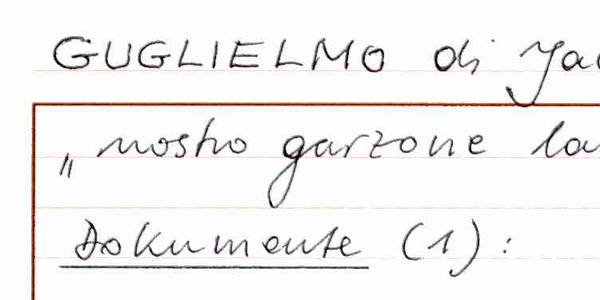 GUGLIELMO di Ja
„nostro garzone la
Dokumente (1):